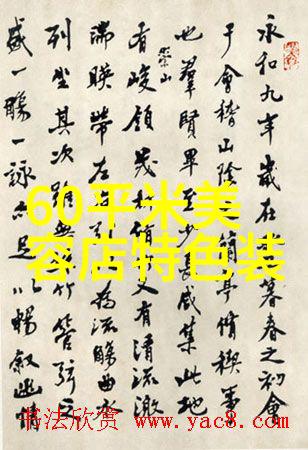 永和九年歲在暮春之初會
于會稽山陰之蘭亭脩禊事
也羣賢畢至少長咸集此地
有崇山峻領茂林脩又有清流激
湍暎帶左右引為流觴曲水
列坐其次雖無竹管弦之
盛一觴一詠亦足以暢敘幽情
60平米美
容店特色装
书法欣赏 www.yac8.com